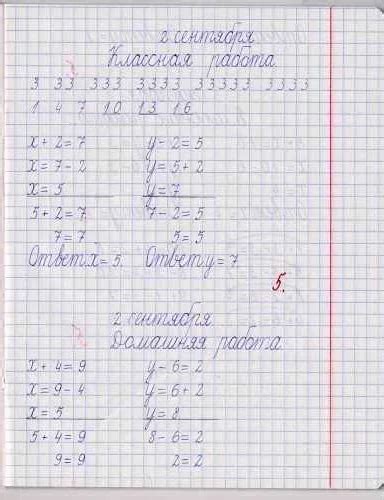 2 сентября
Классная работа
3 33 333 3333 33333 3333
1 4 7 10 13 16
x + 2 = 7 y - 2 = 5
x = 7 - 2 y = 5 + 2
x = 5 y = 7
5 + 2 = 7 7 - 2 = 5
7 = 7 5 = 5
Ответ x = 5. Ответ y = 7
5.
2 сентября
Домашняя работа
x + 4 = 9 y - 6 = 2
x = 9 - 4 y = 6 + 2
x = 5 y = 8
5 + 4 = 9 8 - 6 = 2
9 = 9 2 = 2